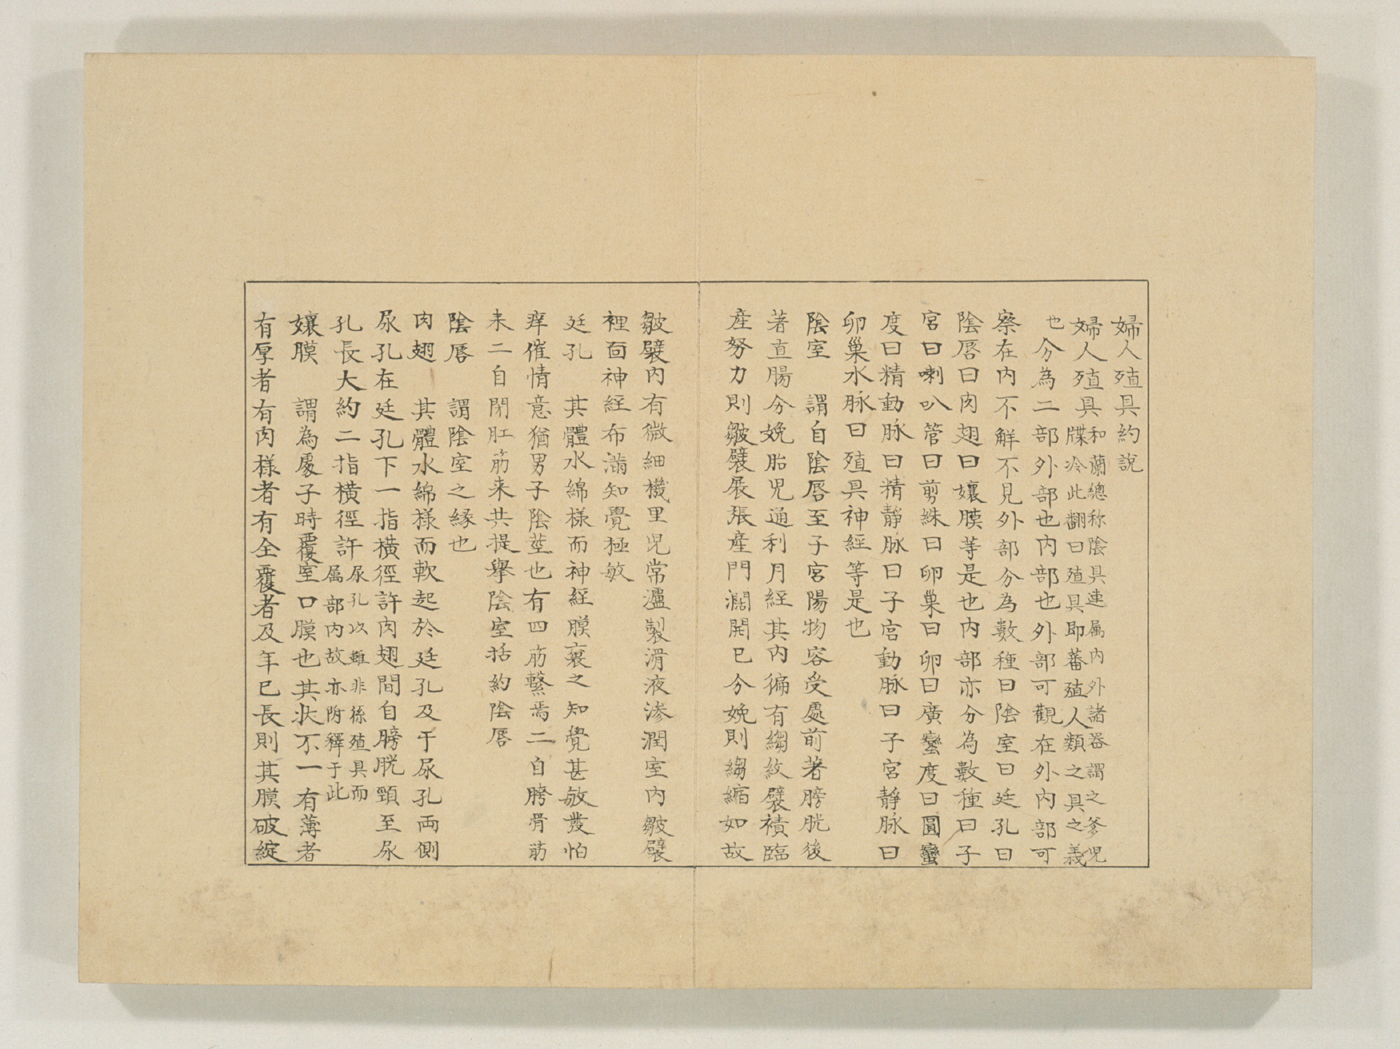 婦人殖具約說
婦人殖具和蘭總称陰具連属内外諸器謂之爹児
牒冷此翻曰殖具即蕃殖人類之具之義
也分為二部外部也内部也外部可觀在外内部可
察在内不解不見外部分為數種曰陰室曰廷孔曰
陰唇曰肉翅曰孃膜等是也内部亦分為數種曰子
宮曰喇叭管曰剪綵曰卵巢曰卵曰廣蠻度曰圓蠻
度曰精動脉曰精靜脉曰子宮動脉曰子宮靜脉曰
卵巢水脉曰殖具神經等是也
陰室　謂自陰唇至子宮陽物容受處前著膀胱後
著直腸分娩胎児通利月經其内徧有縐紋襞襀臨
產努力則皺襞展張產門濶開已分娩則縐縮如故
皺襞内有微細機里児常瀘製滑液滲潤室内皺襞
裡面神経布滿知覺極敏
廷孔　其體水綿様而神経膜裹之知覺甚敏蕟怕
痒催情意猶男子陰莖也有四筋繋焉二自胯骨筋
未二自閉肛筋来共提舉陰室括約陰唇
陰唇　謂陰室之縁也
肉翅　其體水綿様而軟起於廷孔及于尿孔両側
尿孔在廷孔下一指横徑許肉翅間自膀胱頸至尿
孔長大約二指横徑許尿孔以雖非係殖具而
属部内故亦附釋于此
孃膜　謂為處子時覆室口膜也其状不一有薄者
有厚者有肉様者有全覆者及年已長則其膜破綻